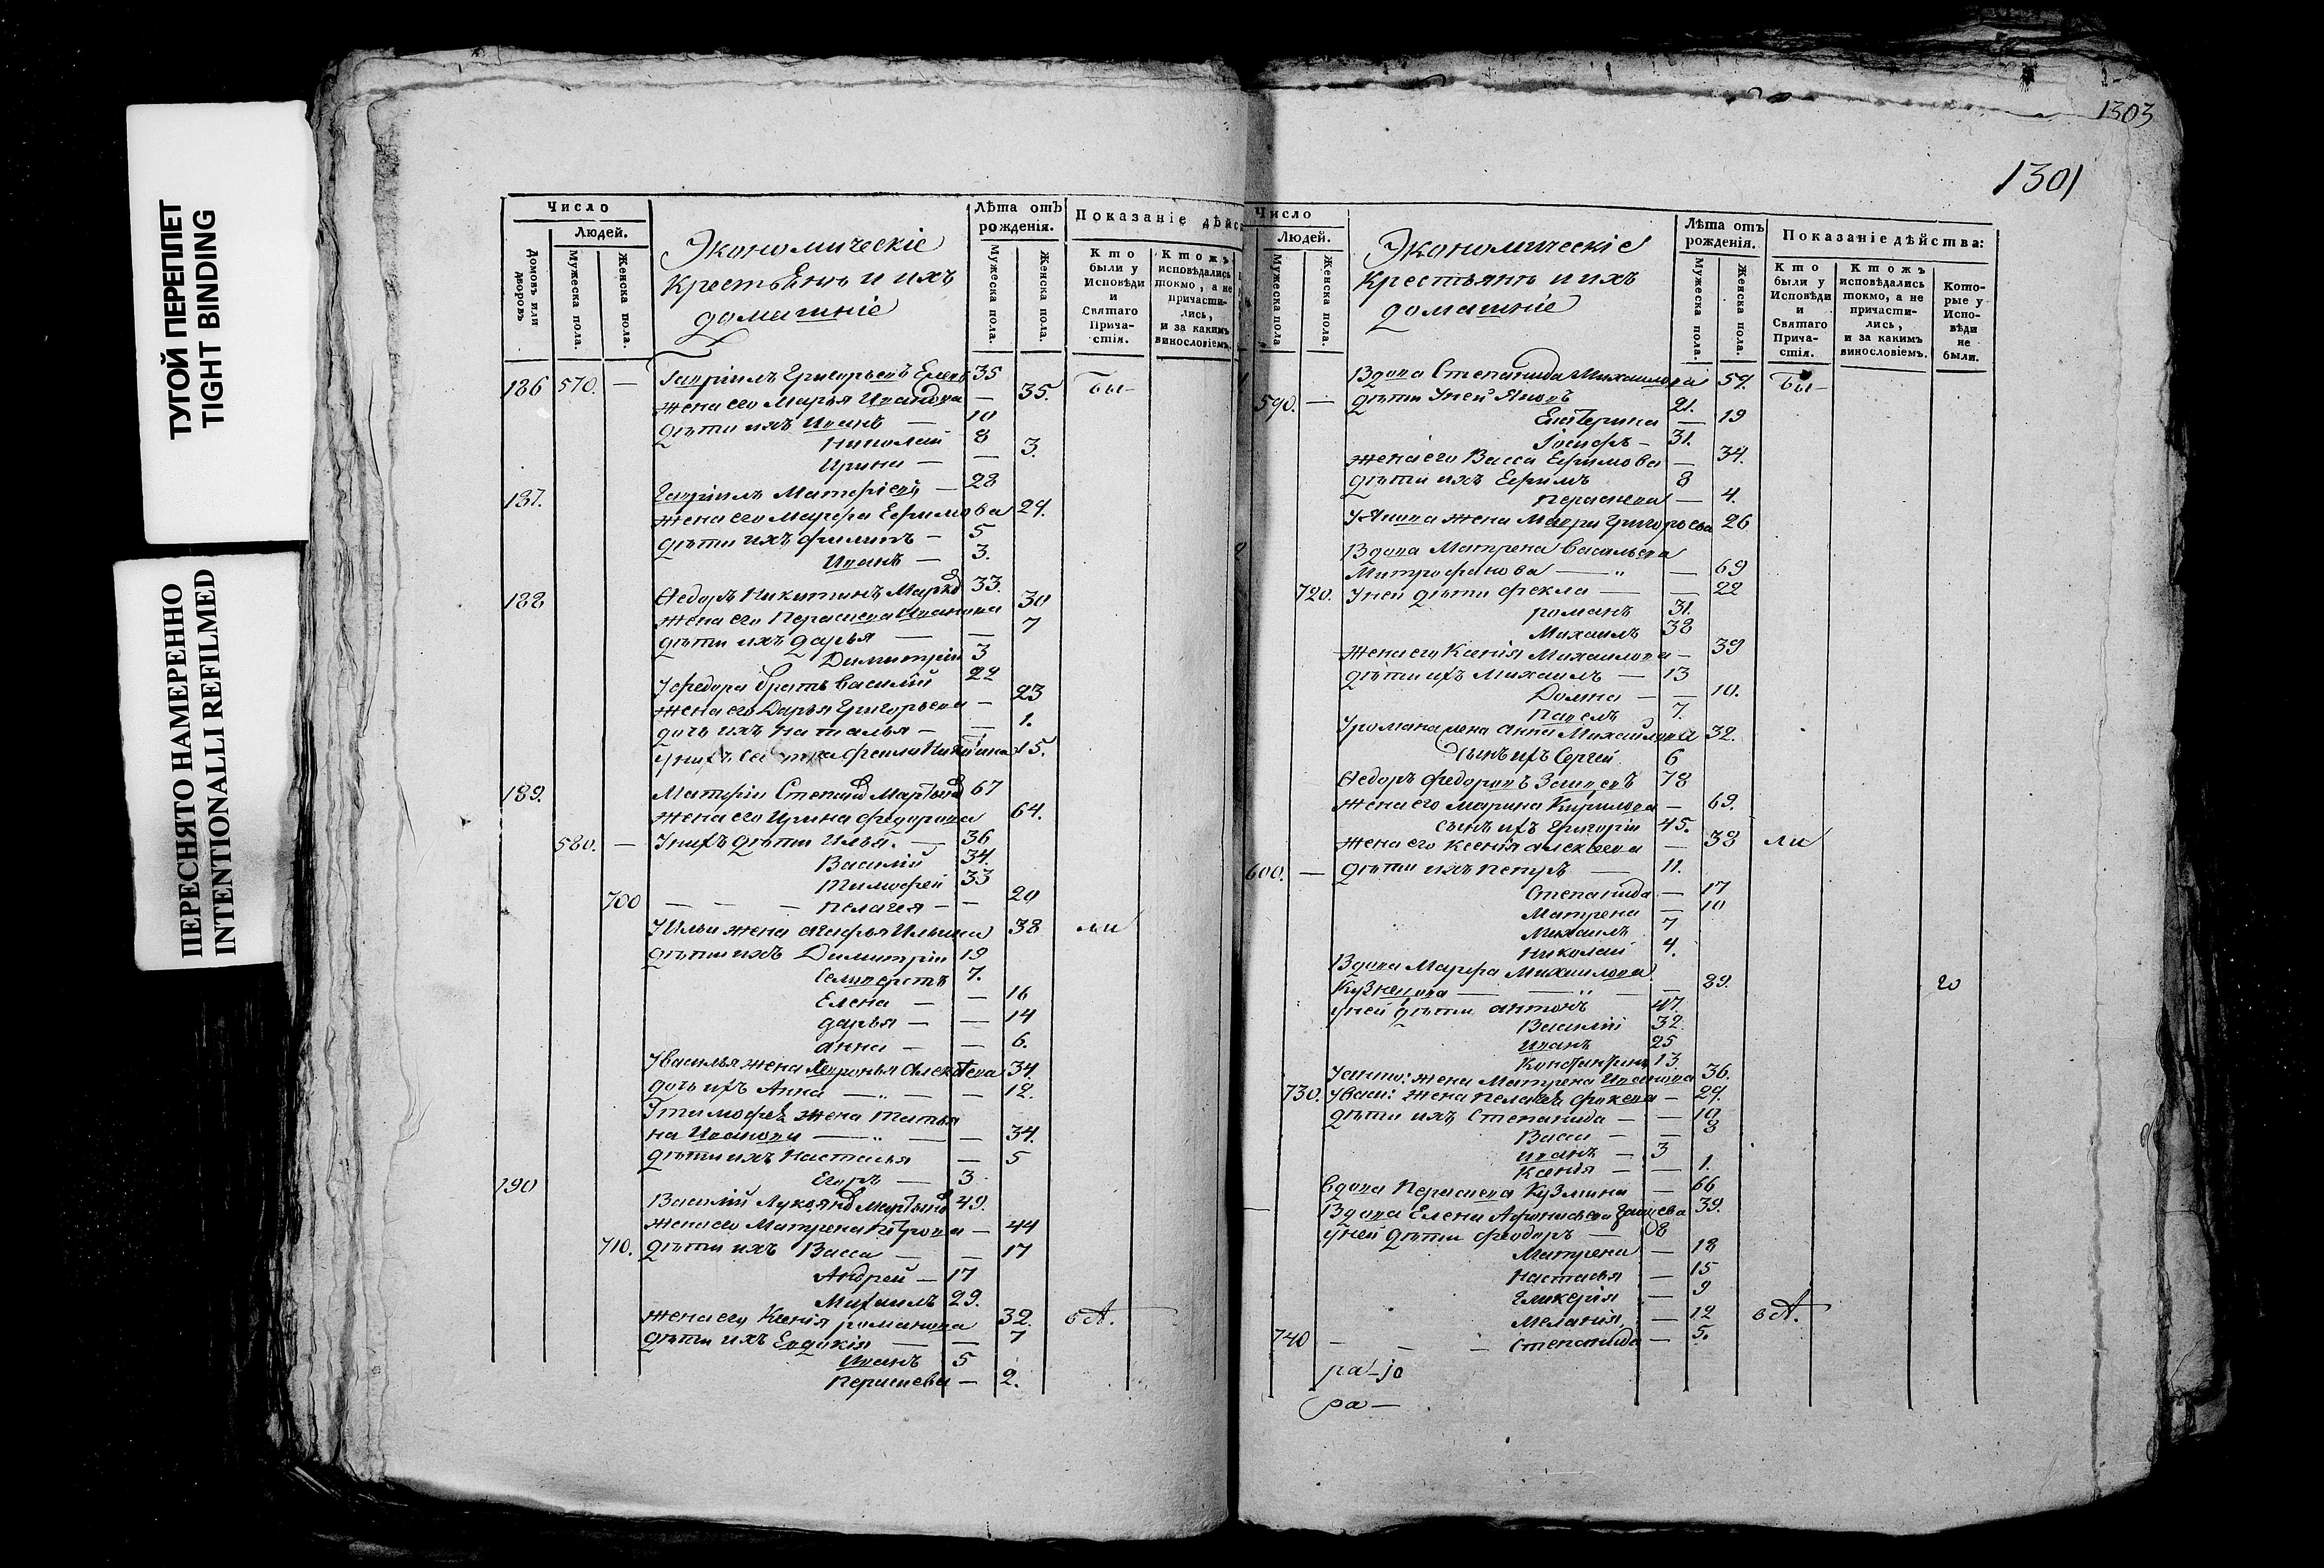 ТУГОЙ ПЕРЕПЛЕТ
TIGHT BINDING
ПЕРЕСНЯТО НАМЕРЕННО
INTENTIONALLI REFILMED
1303
1301
Число
Людей.
Домовъ или дворовъ
Мужеска пола.
Женска пола.
Экономическіе
крестьене и ихъ
домашніе
Лѣта отъ рожденія.
Мужеска пола.
Женска пола.
Показаніе дѣйс
Кто были у Исповѣди и Святаго Причастія.
Ктожъ исповѣдались токмо, а не причастились, и за какимъ винословіемъ.
186 570. — Гавріилъ Григорьевъ 35 Бы
жена его Марья Иванова — 35.
дѣти ихъ Иванъ — 10
Николай 8
Ирина — — 3.
187. Гавріилъ — 28
жена его Марфа Ефимова 29.
дѣти ихъ Филипъ — 5
Иванъ — 3.
188 Федоръ Никитинъ 33.
жена его Параскева Ивановна 30
дѣти ихъ Дарья — — 7
Димитрій 3
У Федора братъ Василій 22
жена его Дарья Григорьева — 23
дочь ихъ Наталья — — 1.
у нихъ сестра Фекла 15.
189. Степанов 67
жена его Ирина Федорова 64.
580. — У нихъ дѣти Илья. — 36
Василій 34.
Тимофей 33
700 — — — Пелагея — — 20
У Ильи жена Агафья Ильина 38 ли
дѣти ихъ Димитрій 19
7.
Елена — — 16
Дарья — — 14
Анна — — 6.
У Василья жена 34.
дочь ихъ Анна — — 12.
У Тимофея жена Татья
на Иванова — — 34.
дѣти ихъ Настасья — 5
Егоръ — 3
190 Василій 49.
жена его Матрена Петрова — 44
710. дѣти ихъ Васса — — 17
Андрей — 17
Михаилъ 29.
жена его Ксенія Романова 32. ст.
дѣти ихъ Евдокія — — 7
Иванъ 5
Параскева — 2.
Число
Людей.
Мужеска пола
Женска пола.
Экономическіе
крестьяне и ихъ
домашніе
Лѣта отъ рожденія.
Мужеска пола.
Женска пола.
Показаніе дѣйства:
Кто были у Исповѣди и Святаго Причастія.
Ктожъ исповѣдались токмо, а не причастились, и за какимъ винословіемъ.
Которые у Исповѣди не были.
Вдова Степанида Михаилова 59. Бы
590. — дѣти у ней 21.
Екатерина — 19
Іосифъ — 31.
жена его Васса Ефимова — 34.
дѣти ихъ Ефимъ 8
Параскева — 4.
жена Мавра Григорьева 26
Вдова Матрена Васильева
Митрофанова — — 69
720. У ней дѣти Фекла — — 22
Романъ 31.
Михаилъ 38
жена его Ксенія Михаилова — 39
дѣти ихъ Михаилъ — 13
Домна — — 10.
Павелъ 7.
У Романа жена Анна Михайлова 32.
сынъ ихъ Сергей 6
Федоръ Федоровъ Зайцевъ 78
жена его Марина Кирилова — 69.
сынъ ихъ Григорій 45.
жена его Ксенія Алексеева — 38 ли
600. — дѣти ихъ Петръ — 11.
Степанида — 17
Матрена — 10
Михаилъ 7
Николай 4.
Вдова Марфа Михаилова
Кузнецова — — — 89. го
у ней дѣти Антонъ 47.
Василій 32.
Иванъ 25
Константинъ 13
У Анто: жена Матрена Иванова 36.
730. У Васи: жена Пелагея Фокева — 29.
дѣти ихъ Степанида — — 10
Васса — — 8
Иванъ — 3
Ксенія — — 1.
Вдова Параскева Кузмина — 66
Вдова Елена Афонасьева Зайцева 39.
у ней дѣти Феодоръ — 08
Матрена — 18
Настасья — 15
Гликерія — 9
Меланія, — 12 ст.
740 — — — Степанида — 5.